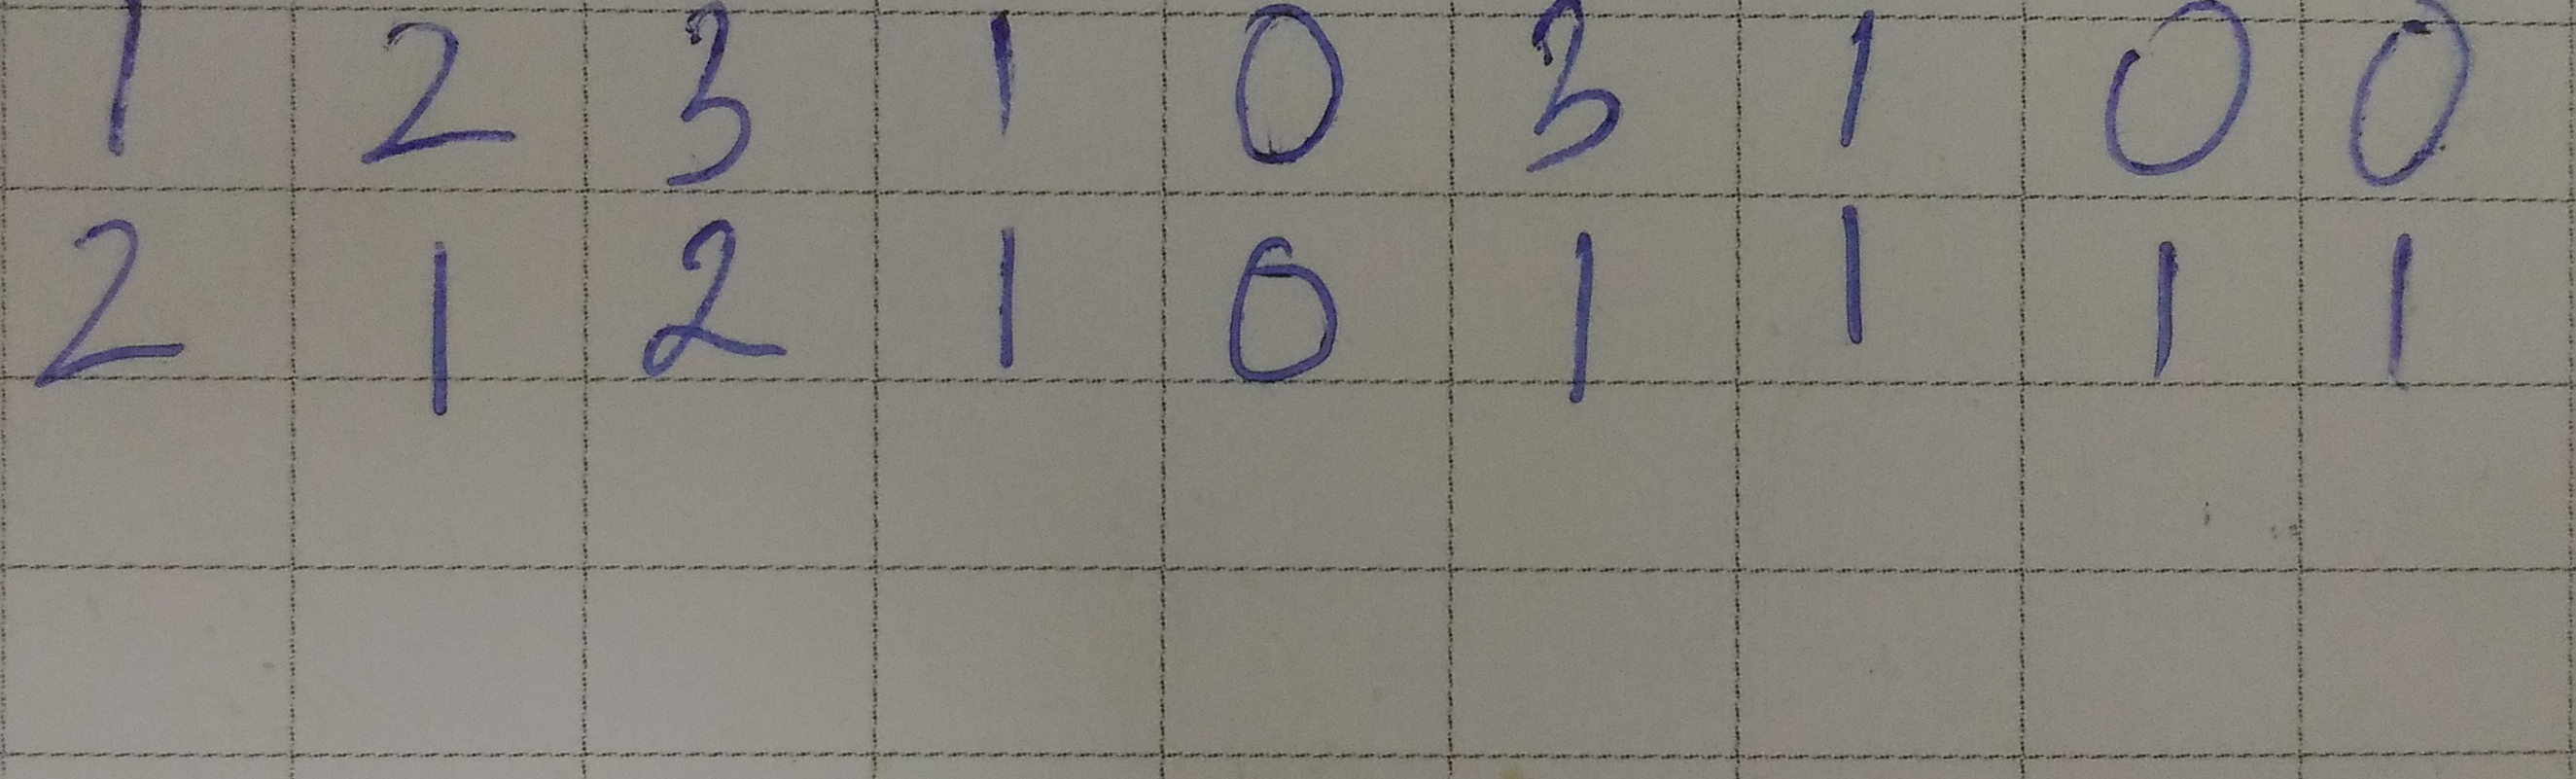 1 2 3 1 0 3 1 0 0
2 1 2 1 0 1 1 1 1